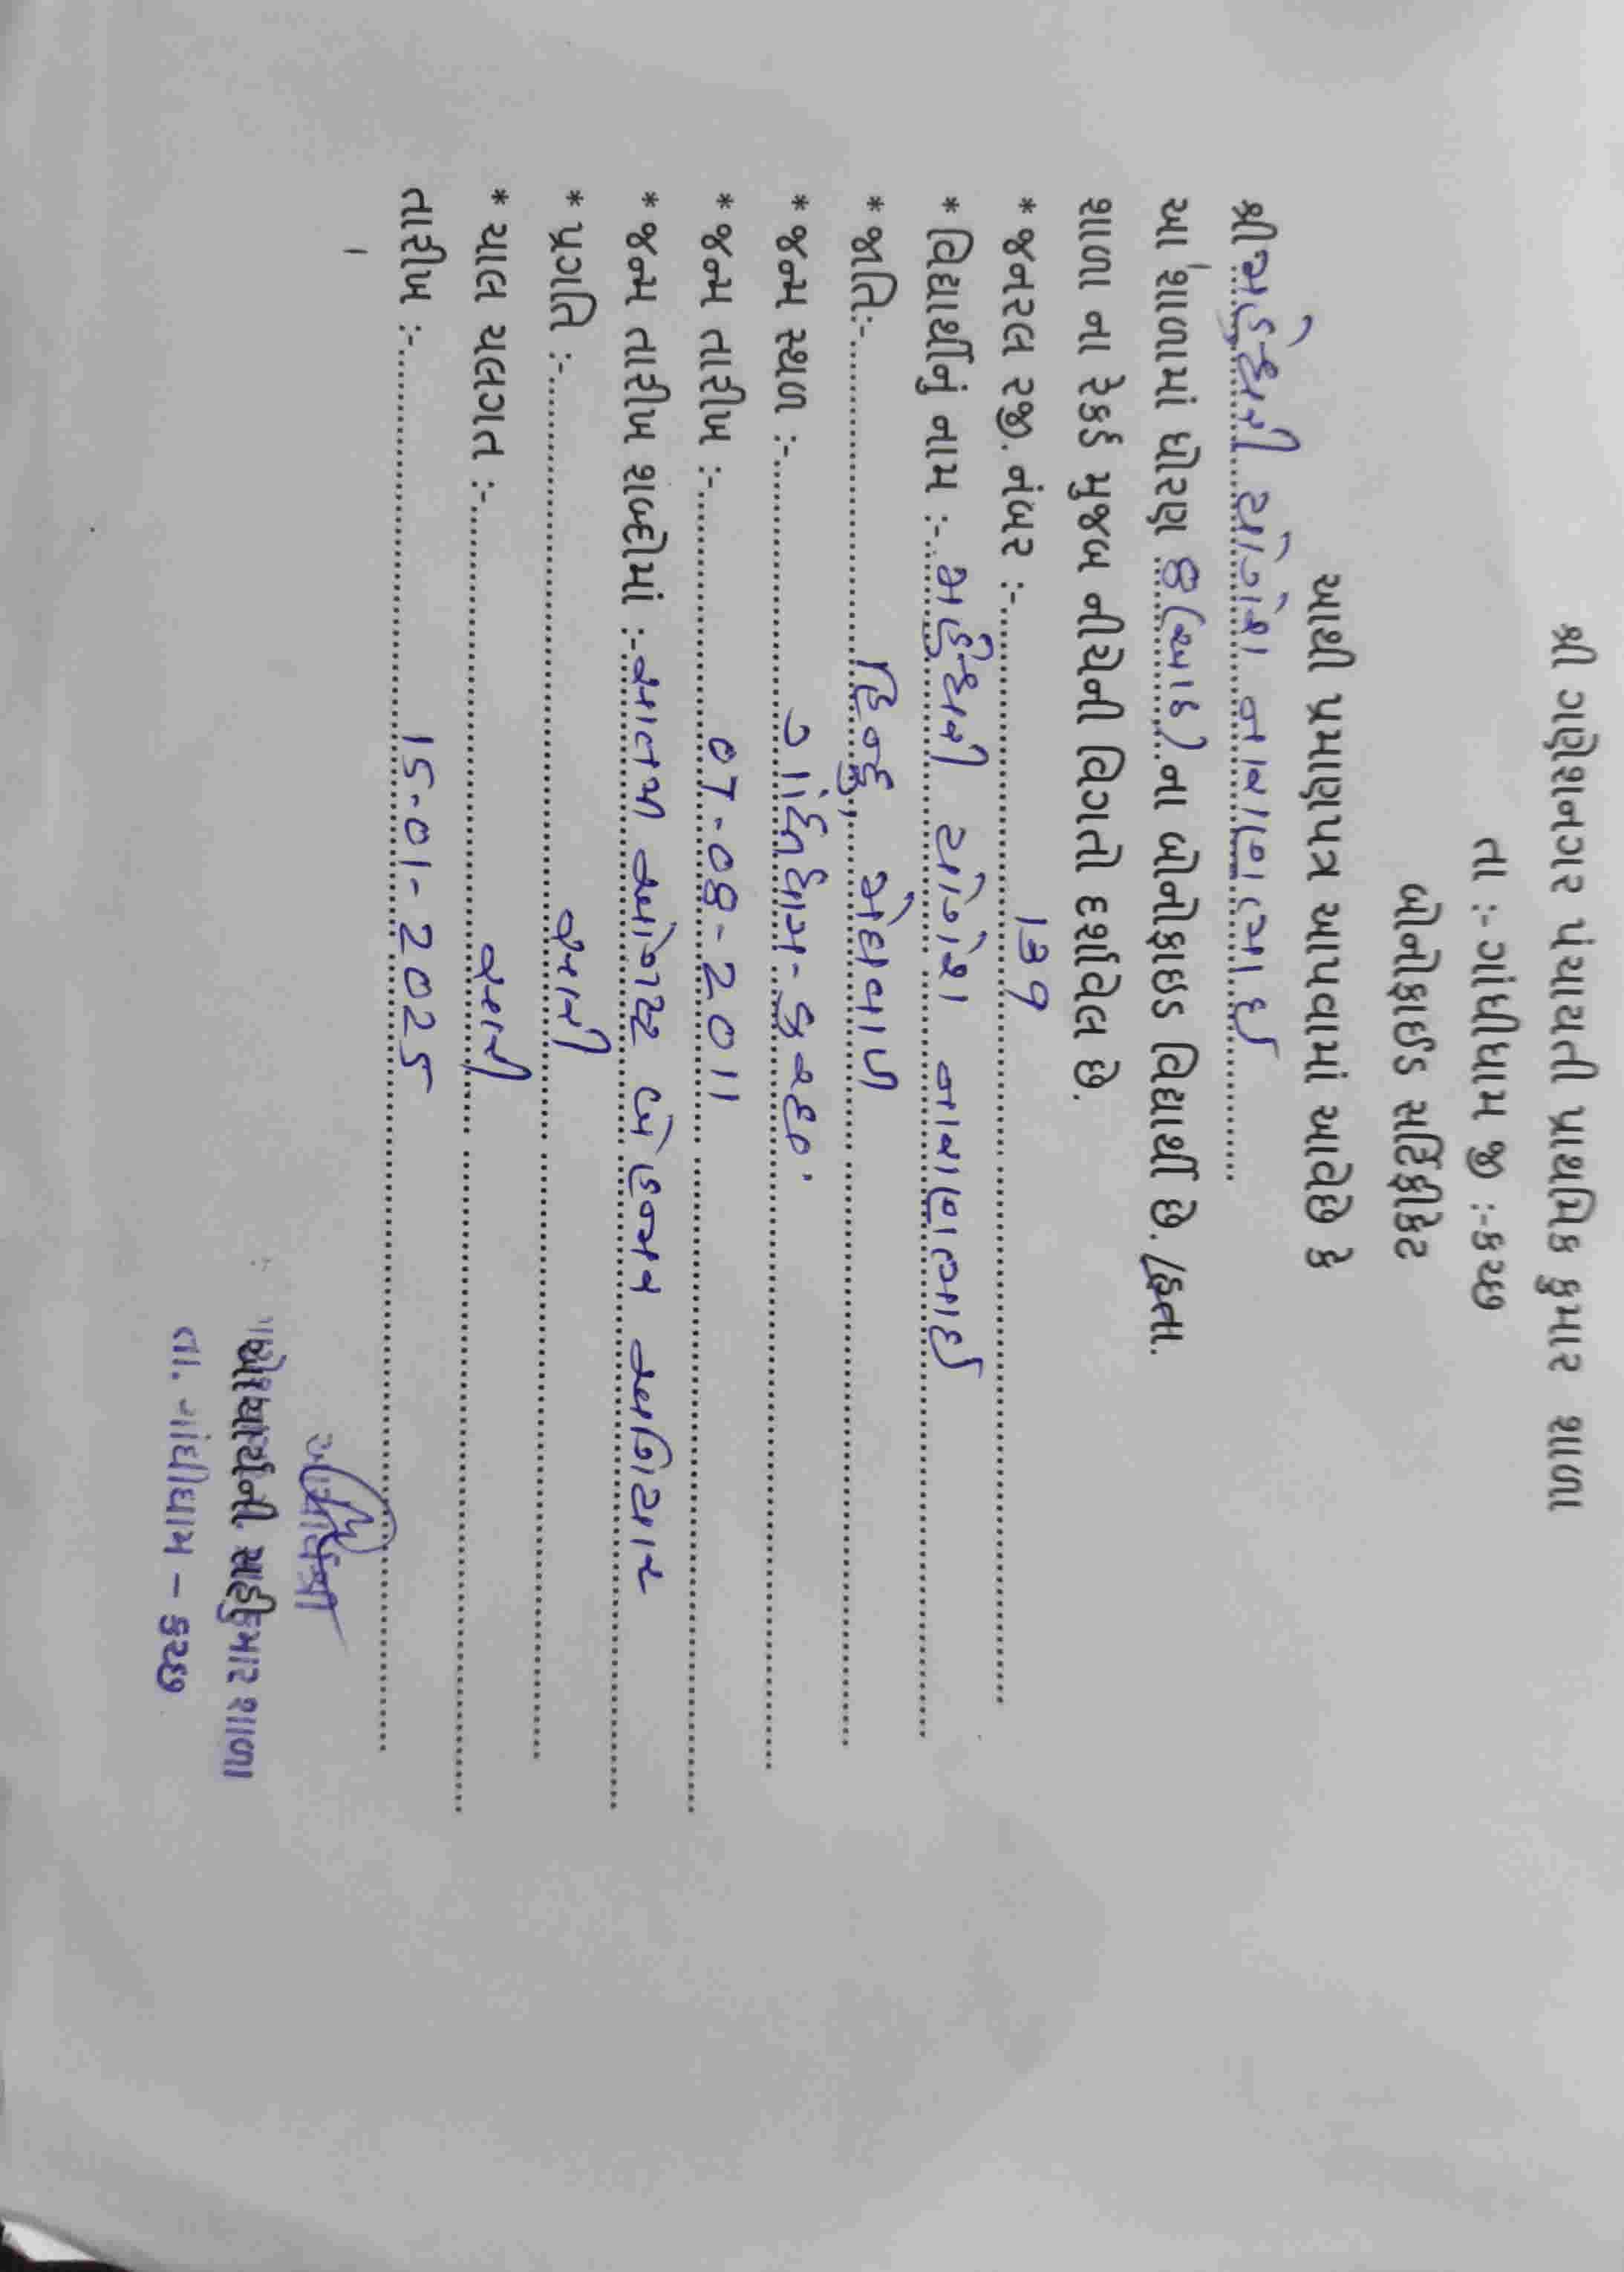 શ્રી ગણેશનગર પંચાયતી પ્રાથમિક કુમાર શાળા
તા :- ગાંધીધામ જી :-કચ્છ
બોનોફાઇડ સર્ટિફીકેટ
આથી પ્રમાણપત્ર આપવામાં આવેછે કે
શ્રી મહેશ્વરી યોગેશ નારાણભાઈ
આ શાળામાં ધોરણ 8 (આઠ) ના બોનોફાઇડ વિદ્યાર્થી છે. / હતા.
શાળા ના રેકર્ડ મુજબ નીચેની વિગતો દર્શાવેલ છે.
* જનરલ રજી. નંબર :- 139
* વિદ્યાર્થીનું નામ :- મહેશ્વરી યોગેશ નારાણભાઈ
* જાતિ:- હિન્દુ, મેઘવાળ
* જન્મ સ્થળ :- ગાંધીધામ-કચ્છ.
* જન્મ તારીખ :- 07-08-2011
* જન્મ તારીખ શબ્દોમાં :- સાતમી ઓગષ્ટ બે હજાર અગિયાર
* પ્રગતિ :- સારી
* ચાલ ચલગત :- સારી
તારીખ :- 15-01-2025
આચાર્યશ્રી
આચાર્યની સહી કુમાર શાળા
તા. ગાંધીધામ - કચ્છ